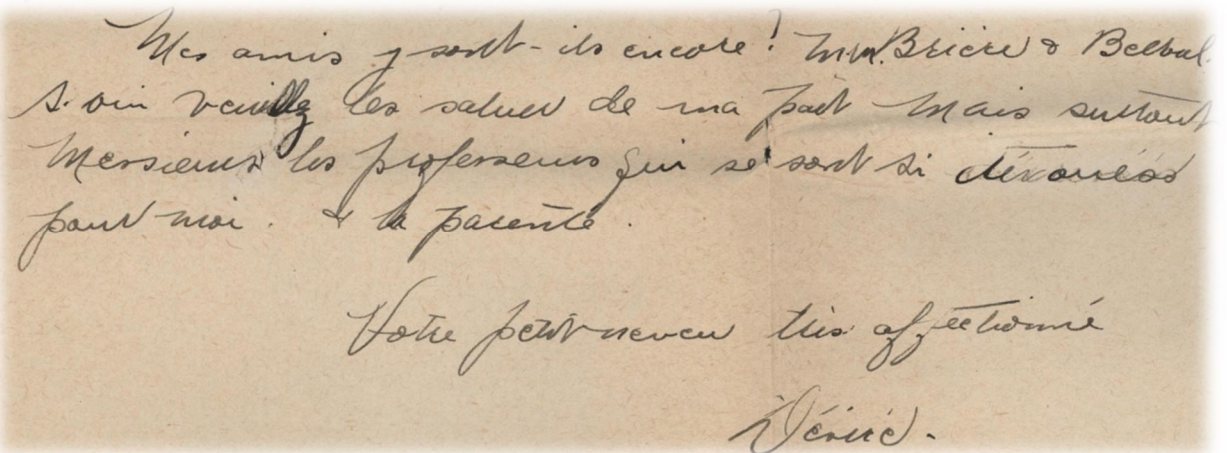 Mes amis y sont-ils encore! MM. Brière & Belval.
S. vin veuillez les saluer de ma part Mais surtout
Messieurs les professeurs qui se sont si dévoués
pour moi. & la parenté.
Votre petit-neveu très affectionné
Désiré.